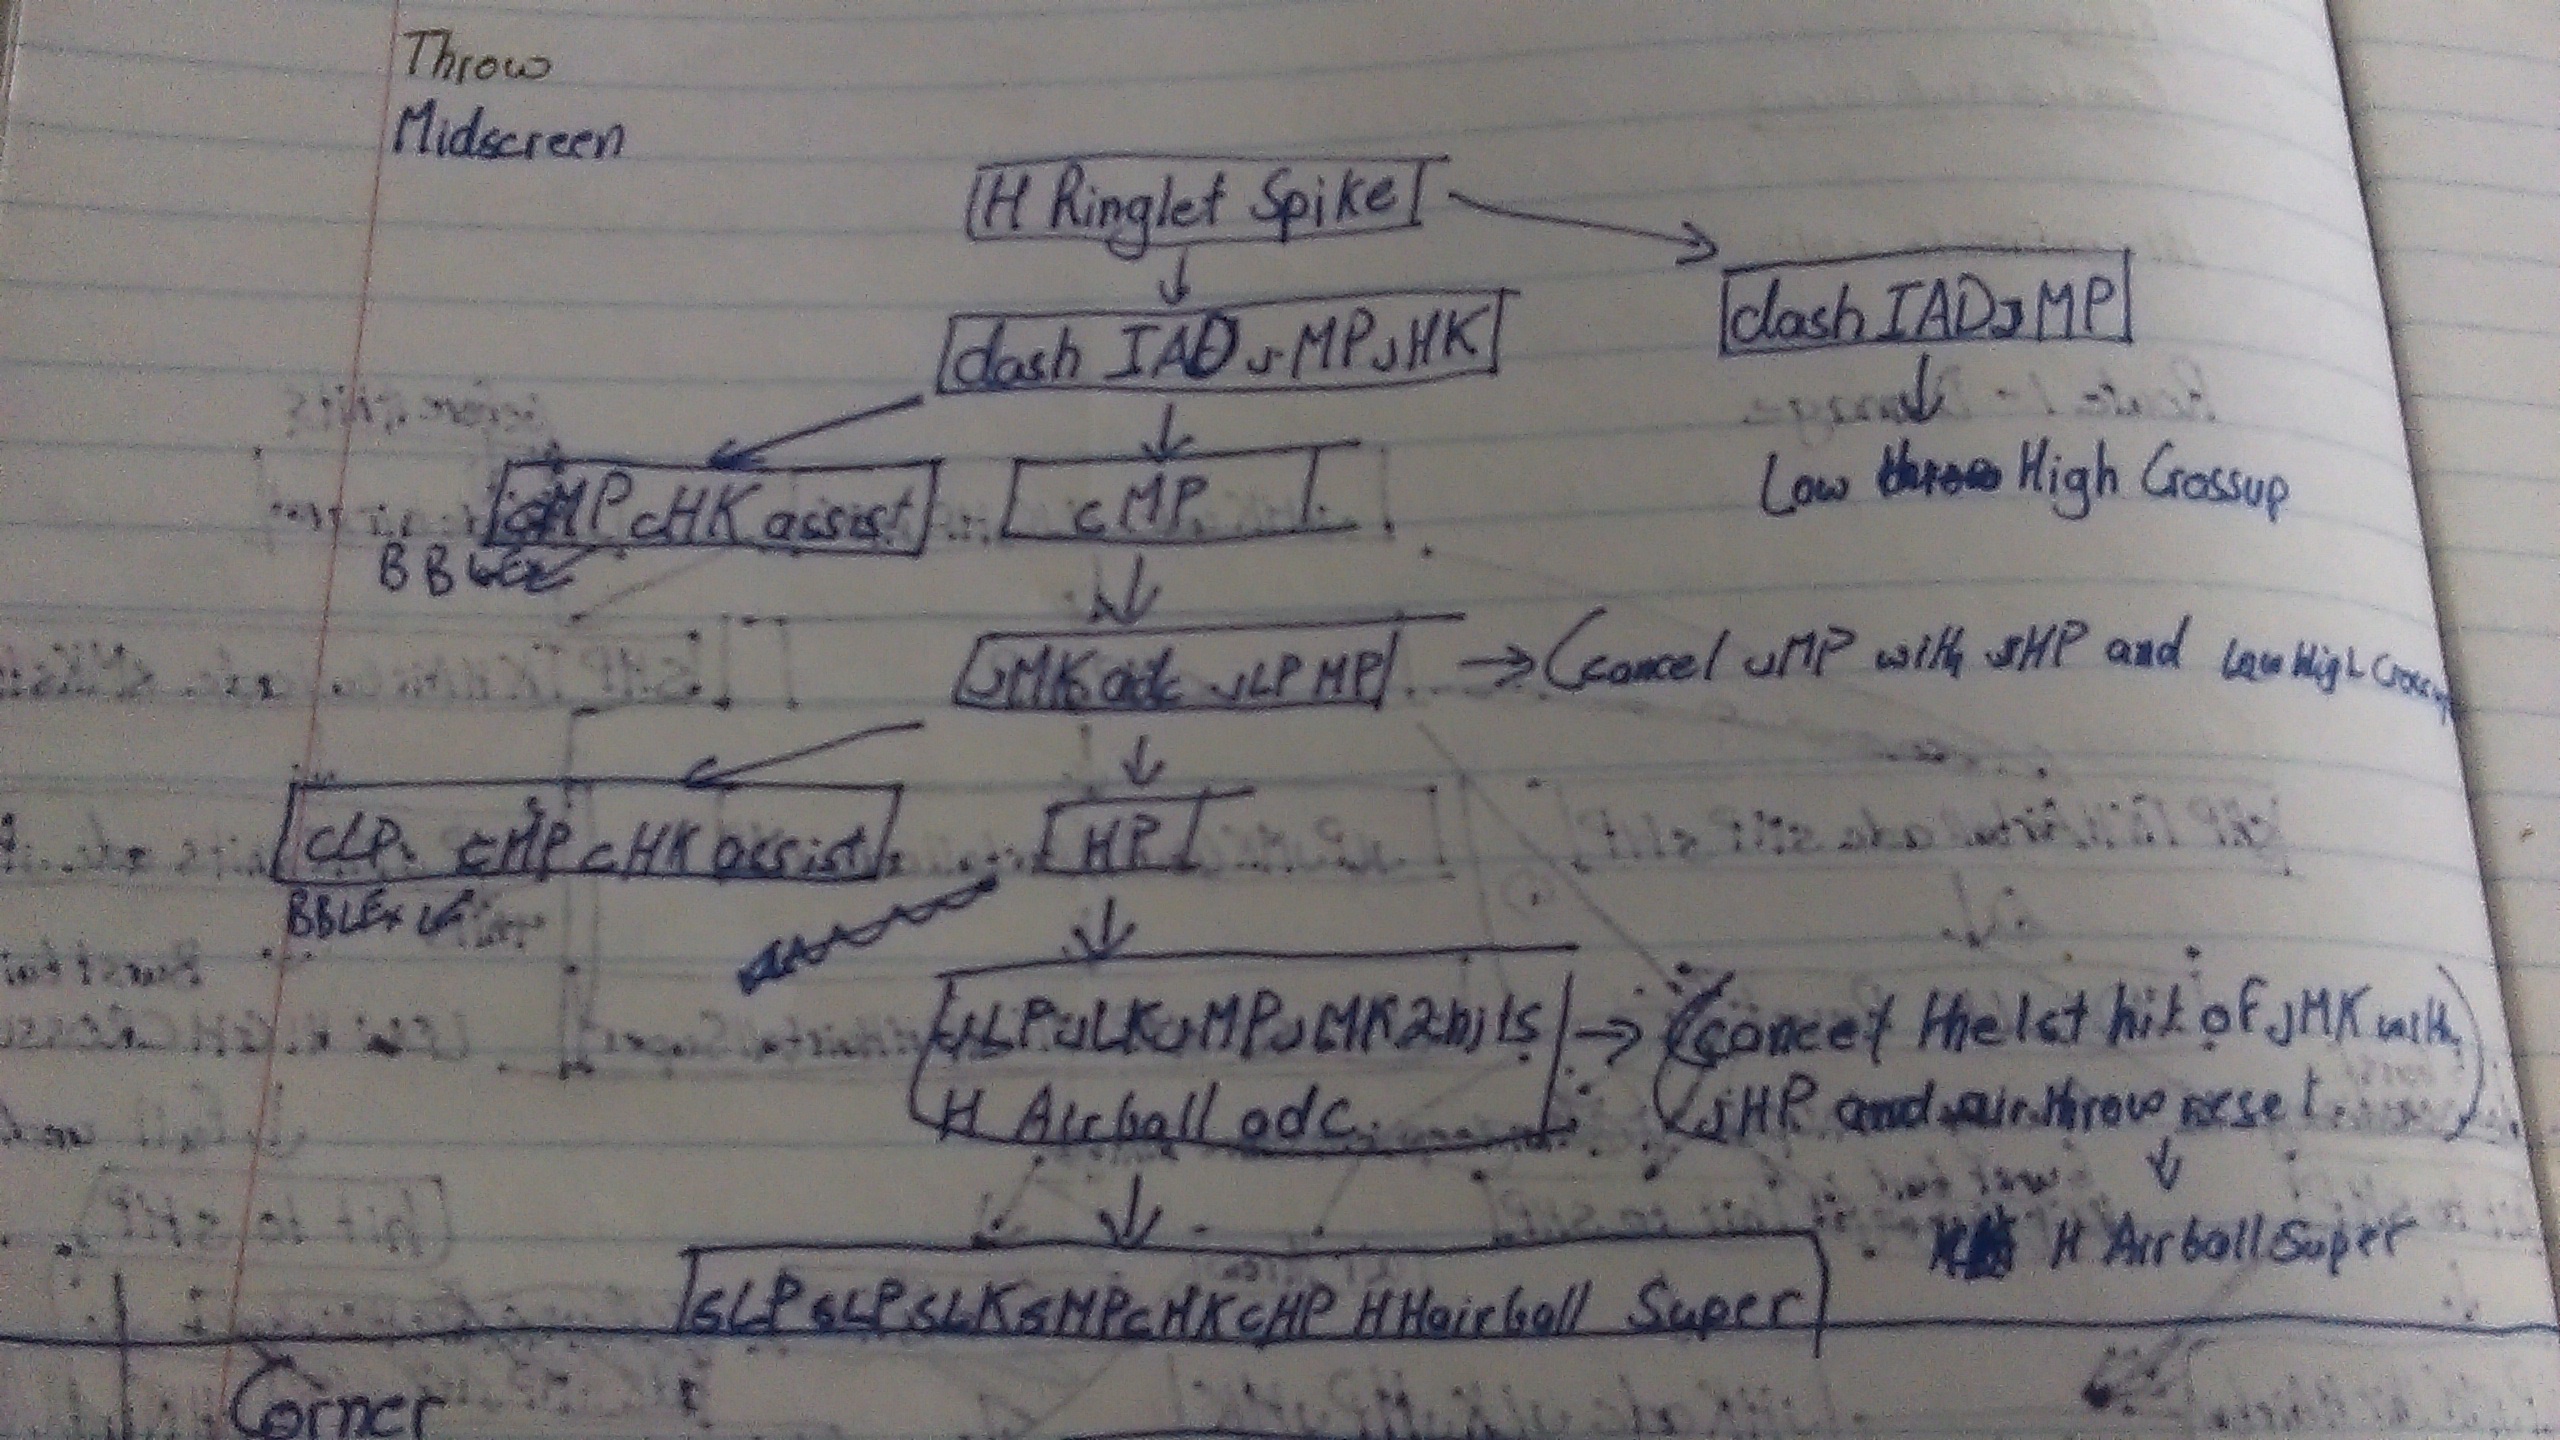 Throw
Midscreen
H Ringlet Spike
dash IAD jMP jHK
dash IAD jMP
cMP cHK assist
cMP
Low High Crossup
BB
jMK adc jLP MP
(cancel jMP with sHP and Low High
cLP cMP cHK assist
HP
BBLEx
jLP jLK jMP jMK 2hits
H Airball adc.
(cancel the 1st hit of jMK with
jHP and air throw reset.)
H Airball Super
sLP sLP sLK sMP cHK cHP H Hairball Super
Corner